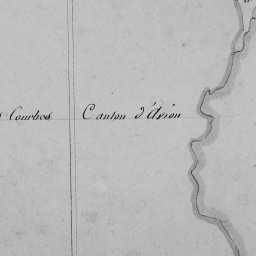 Courbes
Canton d'Arion